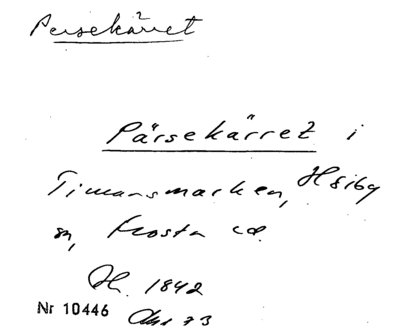 Persekärret
Pärsekärret i
Timansmarken, Häiby
sn, Frosta
1842
Nr 10446 73